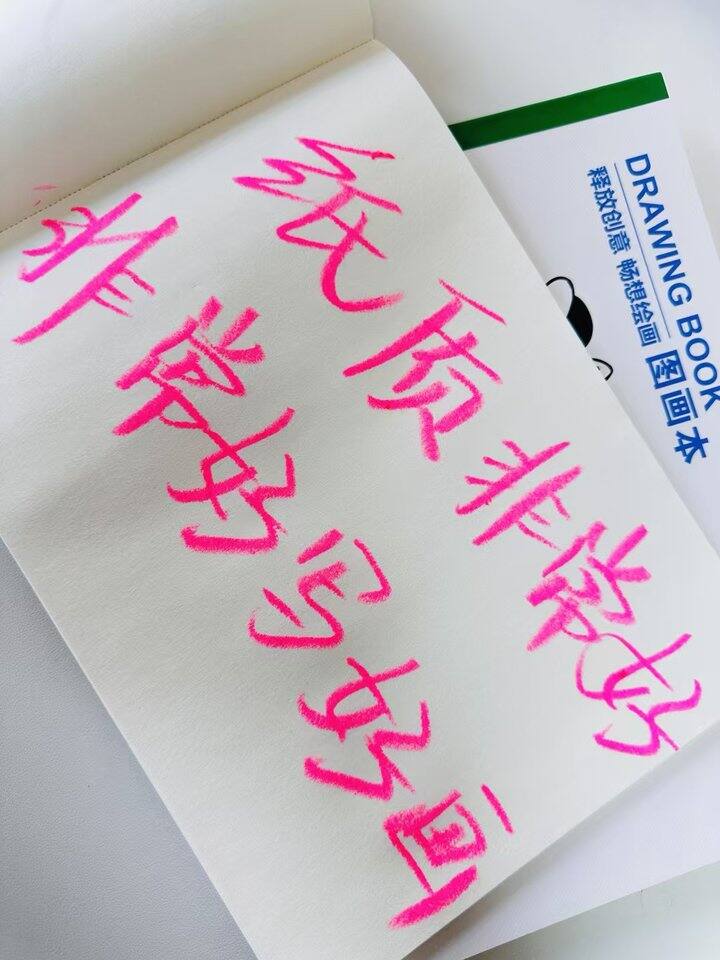 纸质非常好
非常好写好画
DRAWING BOOK
释放创意 畅想绘画
图画本